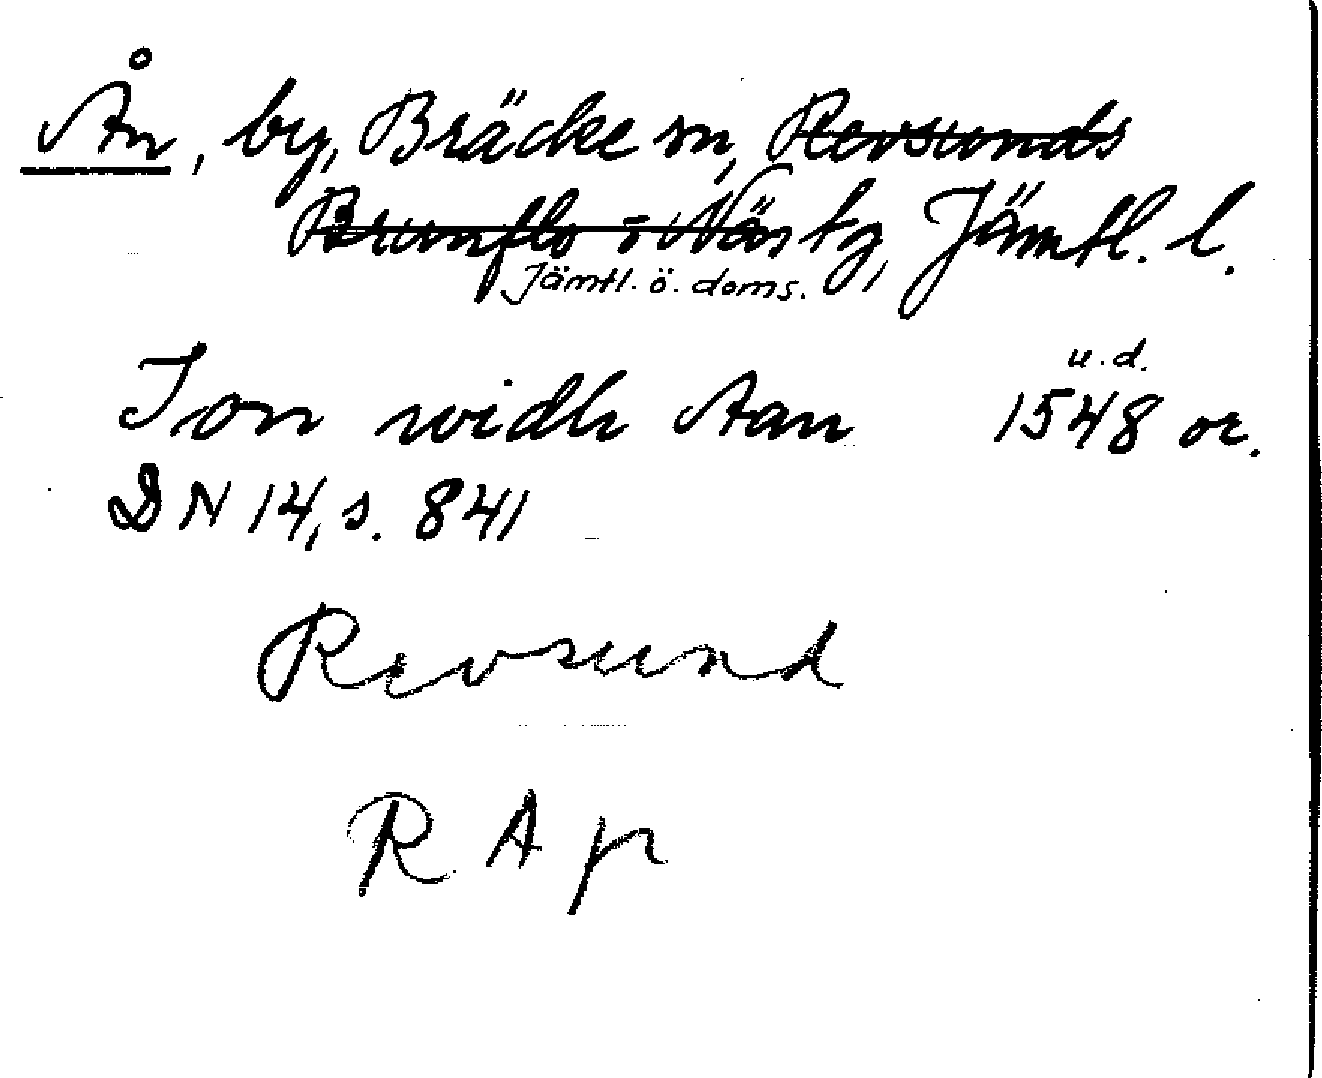 Ån, by, Bräcke sn, Revsunds
Brunflo o Näs tg, Jämtl. l.
Jämtl. ö. doms.
u.d.
Jon widh Aan 1548 or.
DN 14, s. 841
Revsund
RAp